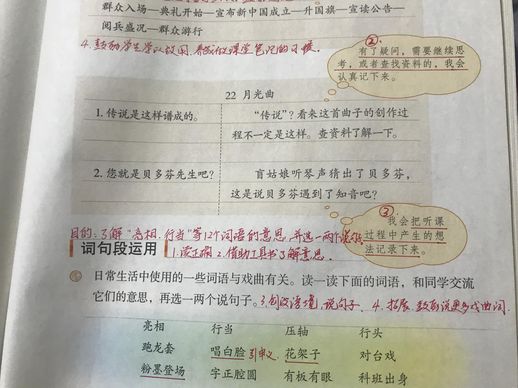 群众入场—典礼开始—宣布新中国成立—升国旗—宣读公告—
阅兵盛况—群众游行
②
有了疑问，需要继续思
考，或者查找资料的，我会
认真记下来。
22 月光曲
1. 传说是这样谱成的。
“传说”？看来这首曲子的创作过
程不一定是这样。查资料了解一下。
2. 您就是贝多芬先生吧？
盲姑娘听琴声猜出了贝多芬，
这是说贝多芬遇到了知音吧？
③
我会把听课
过程中产生的想
法记录下来。
目的：了解“亮相、行当”等12个词语的意思，并选一两个说句
词句段运用
1.读正确 2.借助工具书了解意思.
日常生活中使用的一些词语与戏曲有关。读一读下面的词语，和同学交流
它们的意思，再选一两个说句子。
3.创设语境，说句子、 4.拓展，鼓励说更多戏曲词.
亮相 行当 压轴 行头
跑龙套 唱白脸 引申义 花架子 对台戏
粉墨登场 字正腔圆 有板有眼 科班出身